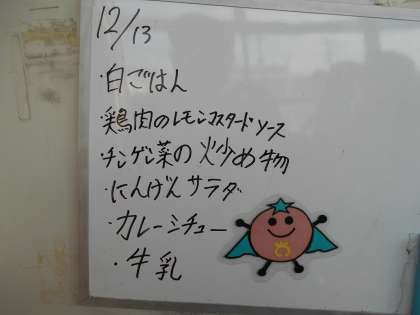 12/13
・白ごはん
・鶏肉のレモンマスタードソース
・チンゲン菜の炒め物
・にんげんサラダ
・カレーシチュー
・牛乳